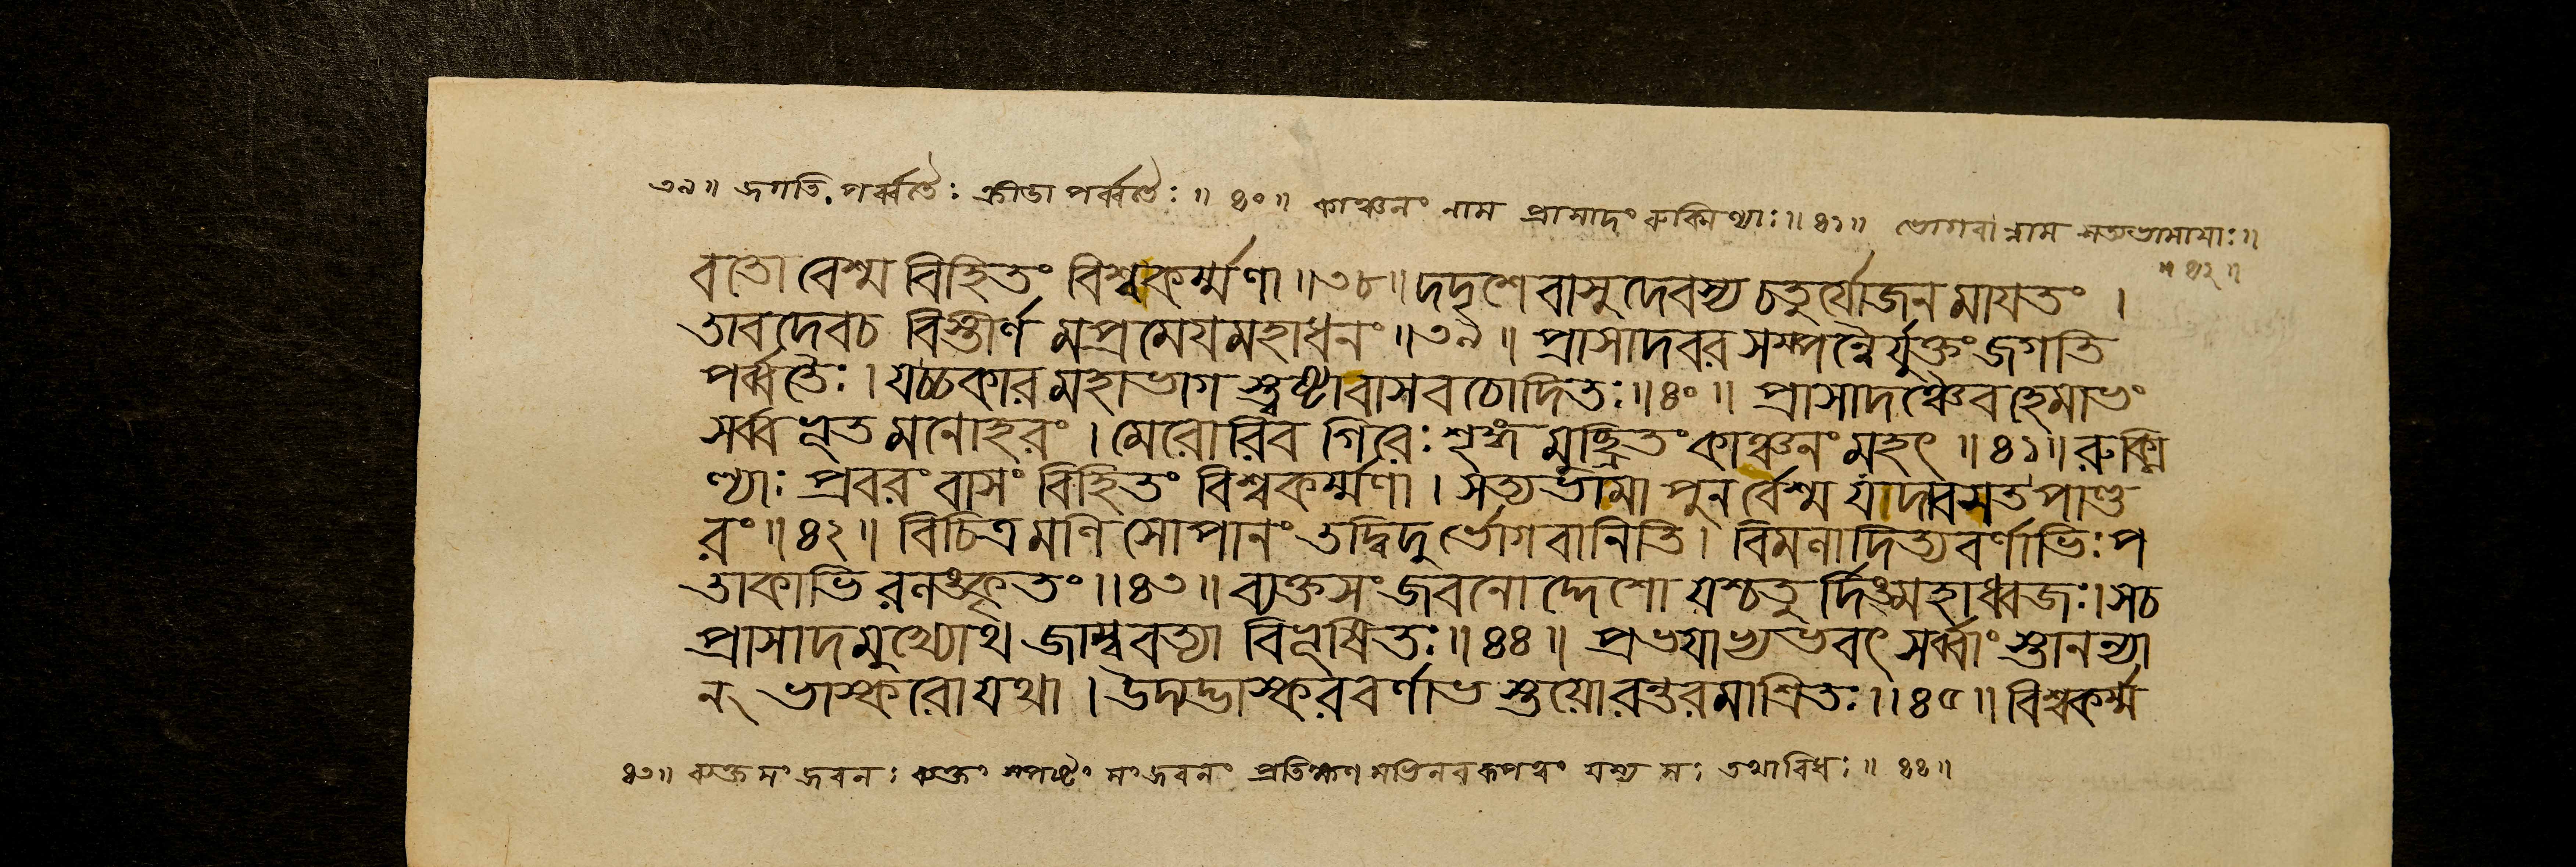 ৩৯॥ জগতি. পর্ব্বতৈঃ ক্রীডা পর্ব্বতৈঃ॥ ৪০॥ কাঞ্চনং নাম প্রাসাদং রুক্মিণ্যাঃ॥ ৪১॥ ভোগবান্নাম সত্যভামাযাঃ॥
॥ ৪২॥
বতো বেশ্ম বিহিতং বিশ্বকর্ম্মণা॥৩৮॥ দদৃশে বাসুদেবস্য চতুর্যোজনমাযতং ।
তাবদেবচ বিস্তীর্ণমপ্রমেযমহাধনং॥৩৯॥ প্রাসাদবরসম্পন্নৈর্যুক্তংজগতি
পর্ব্বতৈঃ। যচ্চকারমহাভাগ স্ত্বষ্টাবাসবচোদিতঃ॥৪০॥ প্রাসাদঞ্চৈবহেমাভং
সর্ব্বভূতমনোহরং । মেরোরিব গিরেঃ শৃঙ্গমুচ্ছ্রিতং কাঞ্চনং মহৎ॥৪১॥ রুক্মি
ণ্যাঃ প্রবরং বাসং বিহিতং বিশ্বকর্ম্মণা। সত্যভামা পুনর্বেশ্ম যদাবসত পাণ্ডু
রং॥৪২॥ বিচিত্রমণিসোপানং তদ্বিদুর্ভোগবানিতি। বিমনাদিত্যবর্ণাভিঃ প
তাকাভিরনঙ্কৃতং॥৪৩॥ ব্যক্তসংজবনোদ্দেশো যশ্চতুর্দিঙ্মহাধ্বজঃ। সচ
প্রাসাদমুখ্যোথ জাম্ববত্যা বিভূষিতঃ॥৪৪॥ প্রভযাভ্যভবৎ সর্ব্বাং স্তানন্যা
ন্ ভাস্করোযথা । উদ্যদ্ভাস্করবর্ণাভ স্তয়োরন্তরমাশ্রিতঃ॥৪৫॥ বিশ্বকর্ম্ম
৪৩॥ ব্যক্তসংজবনঃ ব্যক্তং স্পষ্টং সংজবনং প্রতিক্ষণমভিনবরূপত্বং যস্য সঃ তথাবিধঃ॥ ৪৪॥